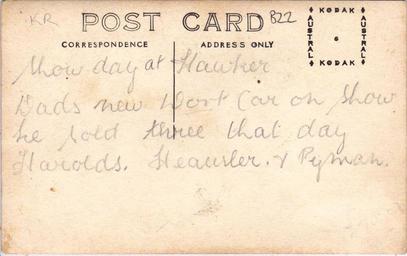 KR
POST CARD B22
CORRESPONDENCE
ADDRESS ONLY
KODAK
AUSTRAL
6
AUSTRAL
KODAK
Show day at Hawker
Dads new Dort Car on Show.
he sold three that day
Harolds. Heausler. & Pyman.